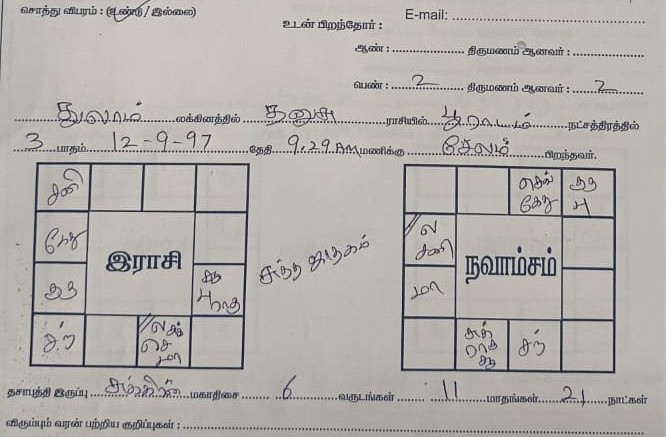 சொத்து விபரம் : (உண்டு / இல்லை)
உடன் பிறந்தோர் :
E-mail:
ஆண் : திருமணம் ஆனவர் :
பெண் : 2 திருமணம் ஆனவர் : 2
துலாம் லக்கினத்தில் தனுசு ராசியில் பூராடம் நட்சத்திரத்தில்
3 பாதம் 12-9-97 தேதி 9.29 AM மணிக்கு சேலம் பிறந்தவர்.
சனி
கேது
இராசி
குரு
சூ பு ராகு
சந்
ல சுக் செ மா
சுத்த ஜாதகம்
செவ் கேது
குரு பு
ல சனி
மா
நவாம்சம்
சுக் ராகு சூ
சந்
தசாபுத்தி இருப்பு சுக்கிரன் மகாதிசை 6 வருடங்கள் 11 மாதங்கள் 21 நாட்கள்
விரும்பும் வரன் பற்றிய குறிப்புகள் :